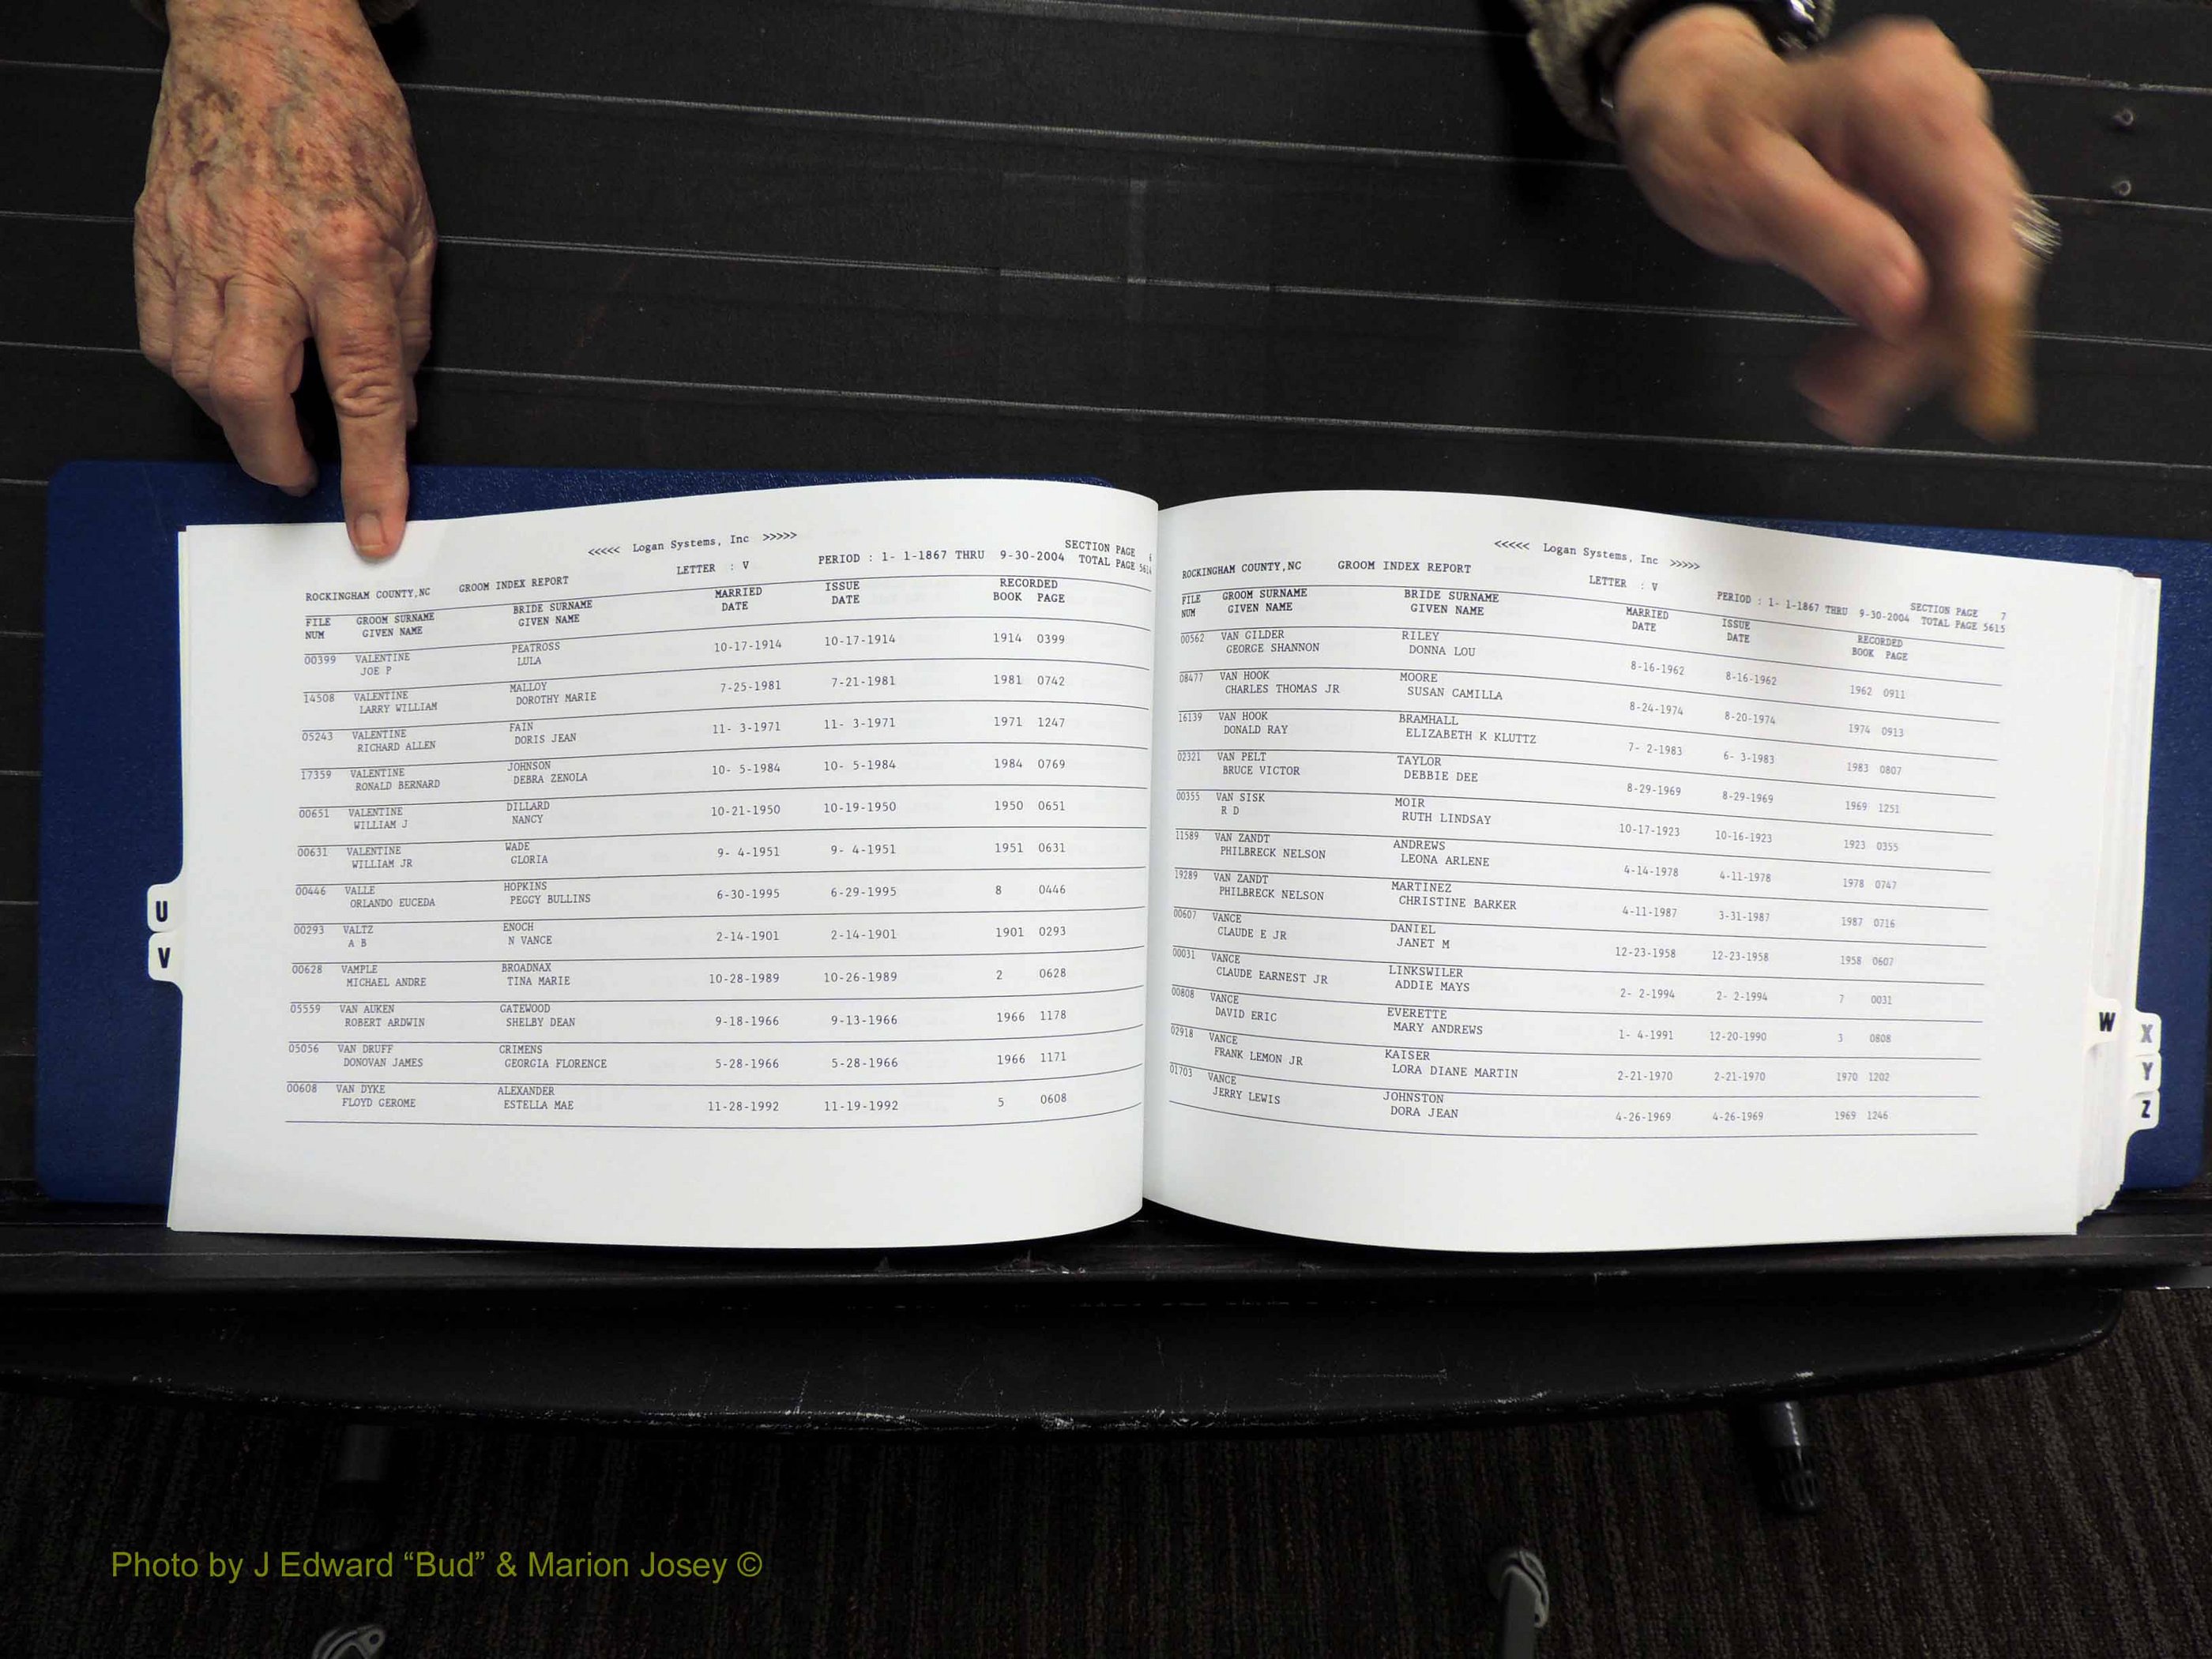 <<<<< Logan Systems, Inc >>>>>
SECTION PAGE
ROCKINGHAM COUNTY,NC GROOM INDEX REPORT LETTER : V PERIOD : 1- 1-1867 THRU 9-30-2004 TOTAL PAGE
FILE GROOM SURNAME BRIDE SURNAME MARRIED ISSUE RECORDED
NUM GIVEN NAME GIVEN NAME DATE DATE BOOK PAGE
00399 VALENTINE PEATROSS 10-17-1914 10-17-1914 1914 0399
JOE P LULA
14508 VALENTINE MALLOY 7-25-1981 7-21-1981 1981 0742
LARRY WILLIAM DOROTHY MARIE
05243 VALENTINE FAIN 11- 3-1971 11- 3-1971 1971 1247
RICHARD ALLEN DORIS JEAN
17359 VALENTINE JOHNSON 10- 5-1984 10- 5-1984 1984 0769
RONALD BERNARD DEBRA ZENOLA
00651 VALENTINE DILLARD 10-21-1950 10-19-1950 1950 0651
WILLIAM J NANCY
00631 VALENTINE WADE 9- 4-1951 9- 4-1951 1951 0631
WILLIAM JR GLORIA
00446 VALLE HOPKINS 6-30-1995 6-29-1995 8 0446
ORLANDO EUCEDA PEGGY BULLINS
00293 VALTZ ENOCH 2-14-1901 2-14-1901 1901 0293
A B N VANCE
00628 VAMPLE BROADNAX 10-28-1989 10-26-1989 2 0628
MICHAEL ANDRE TINA MARIE
05559 VAN AUKEN GATEWOOD 9-18-1966 9-13-1966 1966 1178
ROBERT ARDWIN SHELBY DEAN
05056 VAN DRUFF CRIMENS 5-28-1966 5-28-1966 1966 1171
DONOVAN JAMES GEORGIA FLORENCE
00608 VAN DYKE ALEXANDER 11-28-1992 11-19-1992 5 0608
FLOYD GEROME ESTELLA MAE
U
V
<<<<< Logan Systems, Inc >>>>>
SECTION PAGE 7
ROCKINGHAM COUNTY,NC GROOM INDEX REPORT LETTER : V PERIOD : 1- 1-1867 THRU 9-30-2004 TOTAL PAGE 5615
FILE GROOM SURNAME BRIDE SURNAME MARRIED ISSUE RECORDED
NUM GIVEN NAME GIVEN NAME DATE DATE BOOK PAGE
00562 VAN GILDER RILEY 8-16-1962 8-16-1962 1962 0911
GEORGE SHANNON DONNA LOU
08477 VAN HOOK MOORE 8-24-1974 8-20-1974 1974 0913
CHARLES THOMAS JR SUSAN CAMILLA
16139 VAN HOOK BRAMHALL 7- 2-1983 6- 3-1983 1983 0807
DONALD RAY ELIZABETH K KLUTTZ
02321 VAN PELT TAYLOR 8-29-1969 8-29-1969 1969 1251
BRUCE VICTOR DEBBIE DEE
00355 VAN SISK MOIR 10-17-1923 10-16-1923 1923 0355
R D RUTH LINDSAY
11589 VAN ZANDT ANDREWS 4-14-1978 4-11-1978 1978 0747
PHILBRECK NELSON LEONA ARLENE
19289 VAN ZANDT MARTINEZ 4-11-1987 3-31-1987 1987 0716
PHILBRECK NELSON CHRISTINE BARKER
00607 VANCE DANIEL 12-23-1958 12-23-1958 1958 0607
CLAUDE E JR JANET M
00031 VANCE LINKSWILER 2- 2-1994 2- 2-1994 7 0031
CLAUDE EARNEST JR ADDIE MAYS
00808 VANCE EVERETTE 1- 4-1991 12-20-1990 3 0808
DAVID ERIC MARY ANDREWS
02918 VANCE KAISER 2-21-1970 2-21-1970 1970 1202
FRANK LEMON JR LORA DIANE MARTIN
01703 VANCE JOHNSTON 4-26-1969 4-26-1969 1969 1246
JERRY LEWIS DORA JEAN
W
X
Y
Z
Photo by J Edward “Bud” & Marion Josey ©